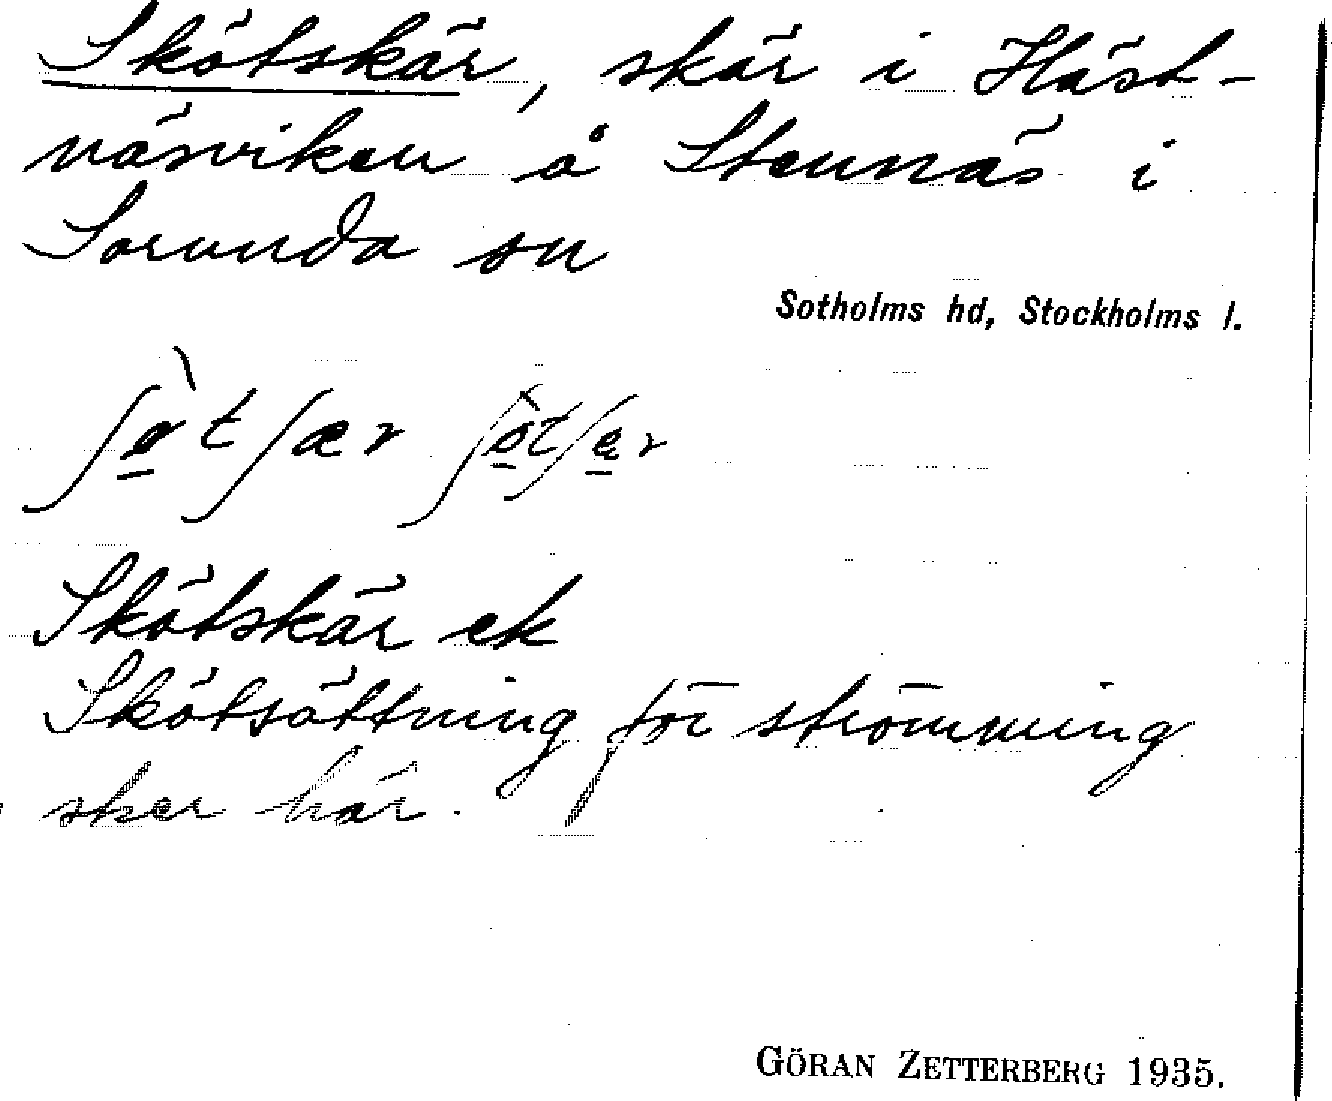 Skötskär, skär i Häst-
näsviken å Stennäs i
Sorunda sn
Sotholms hd, Stockholms l.
Skötskär ek
Skötsättning för strömming
sker här.
GÖRAN ZETTERBERG 1935.